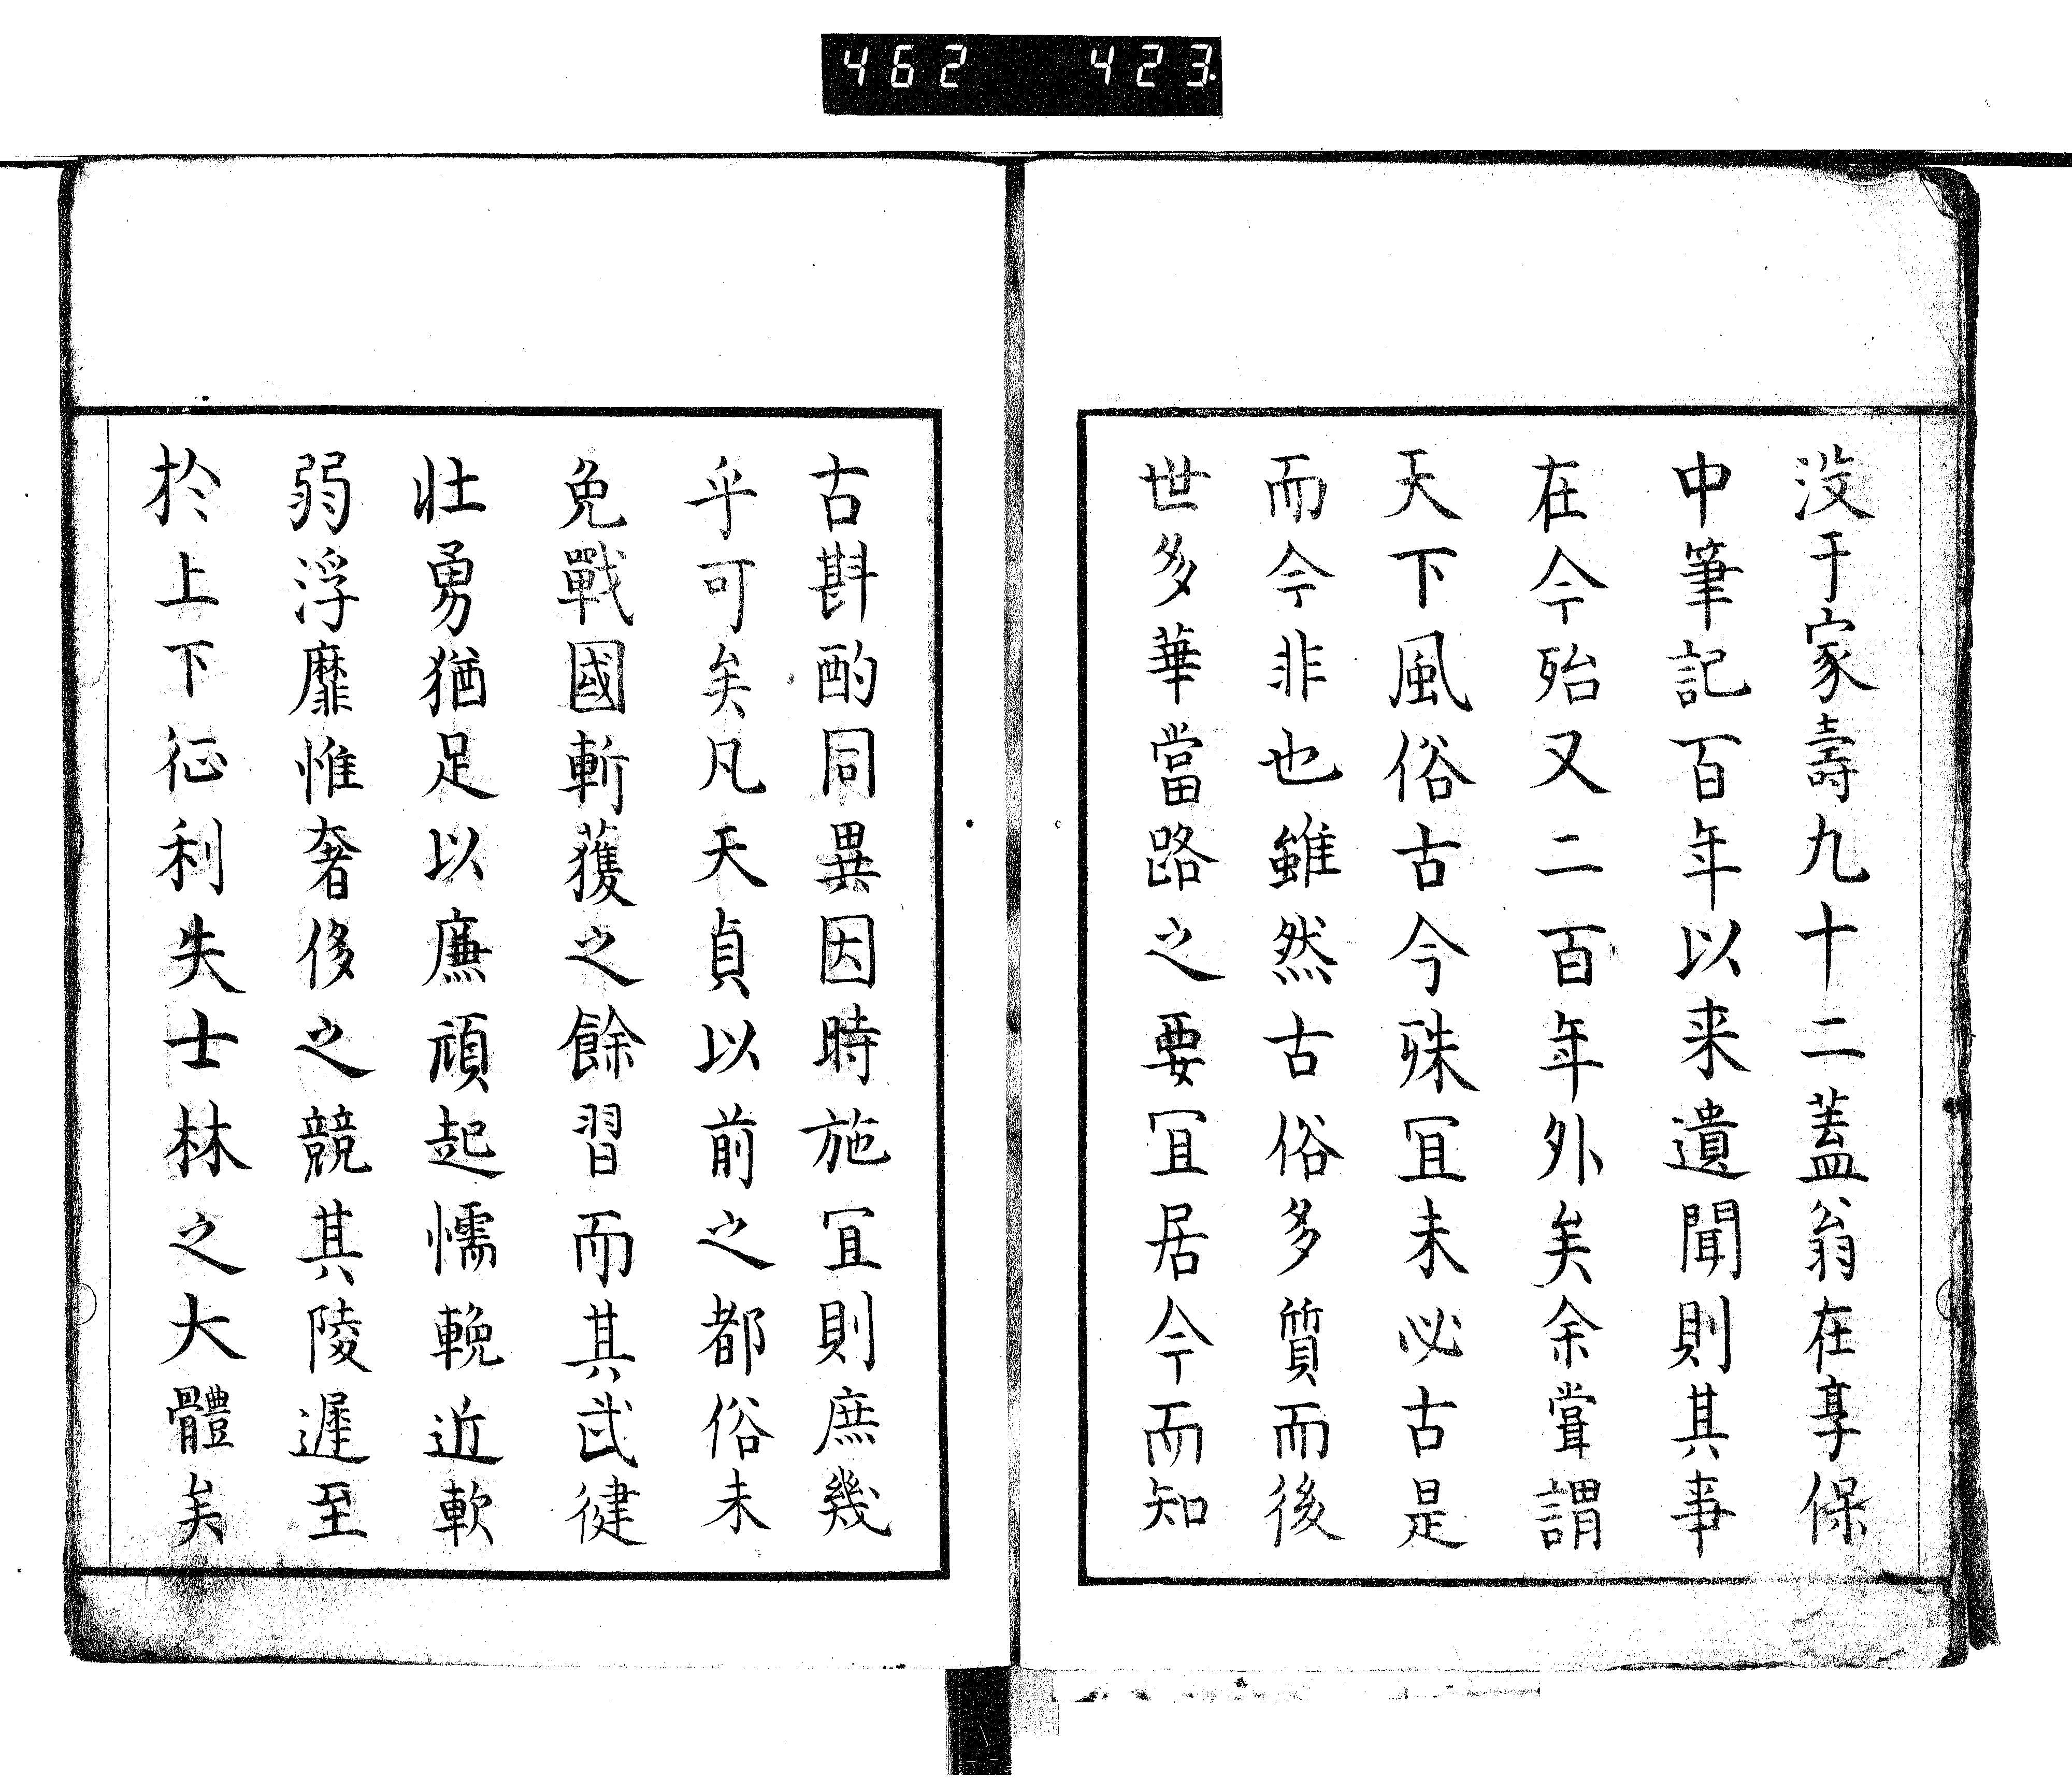 462 423.
没于家壽九十二蓋翁在享保
中筆記百年以来遺聞則其事
在今殆又二百年外矣余嘗謂
天下風俗古今殊冝未必古是
而今非也雖然古俗多質而後
世多華當路之要冝居今而知
古斟酌同異因時施冝則庶幾
乎可矣凡天貞以前之都俗未
免戰國斬獲之餘習而其武健
壮勇猶足以廉頑起懦輓近軟
弱浮靡惟奢侈之競其陵遲至
於上下征利失士林之大體矣